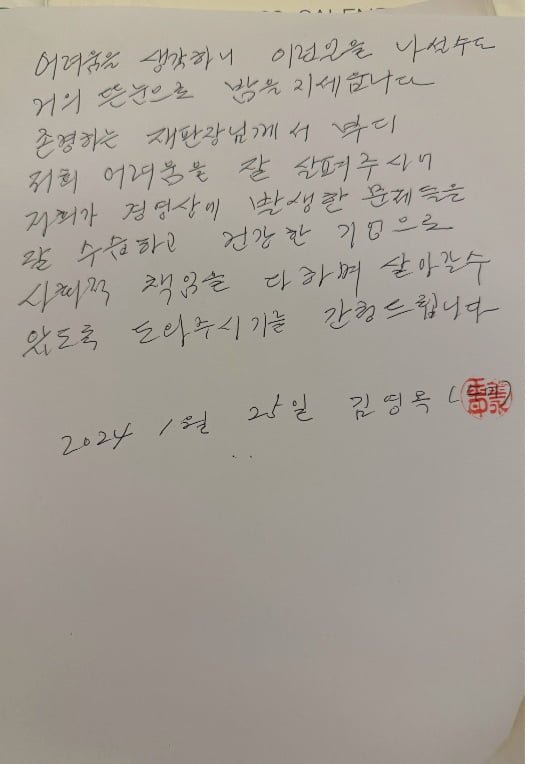 CALEND
어려움을 생각하니
거의 뜬눈으로 밤을 지세웁니다
존경하는 재판장님께서 부디
저희 어려움을 잘 살펴주시어
저희가 경영상에 발생한 문제들을
잘 수습하고 건강한 기업으로
사회적 책임을 다하며 살아갈수
있도록 도와주시기를 간청드립니다
2024 1월 25일 김영옥